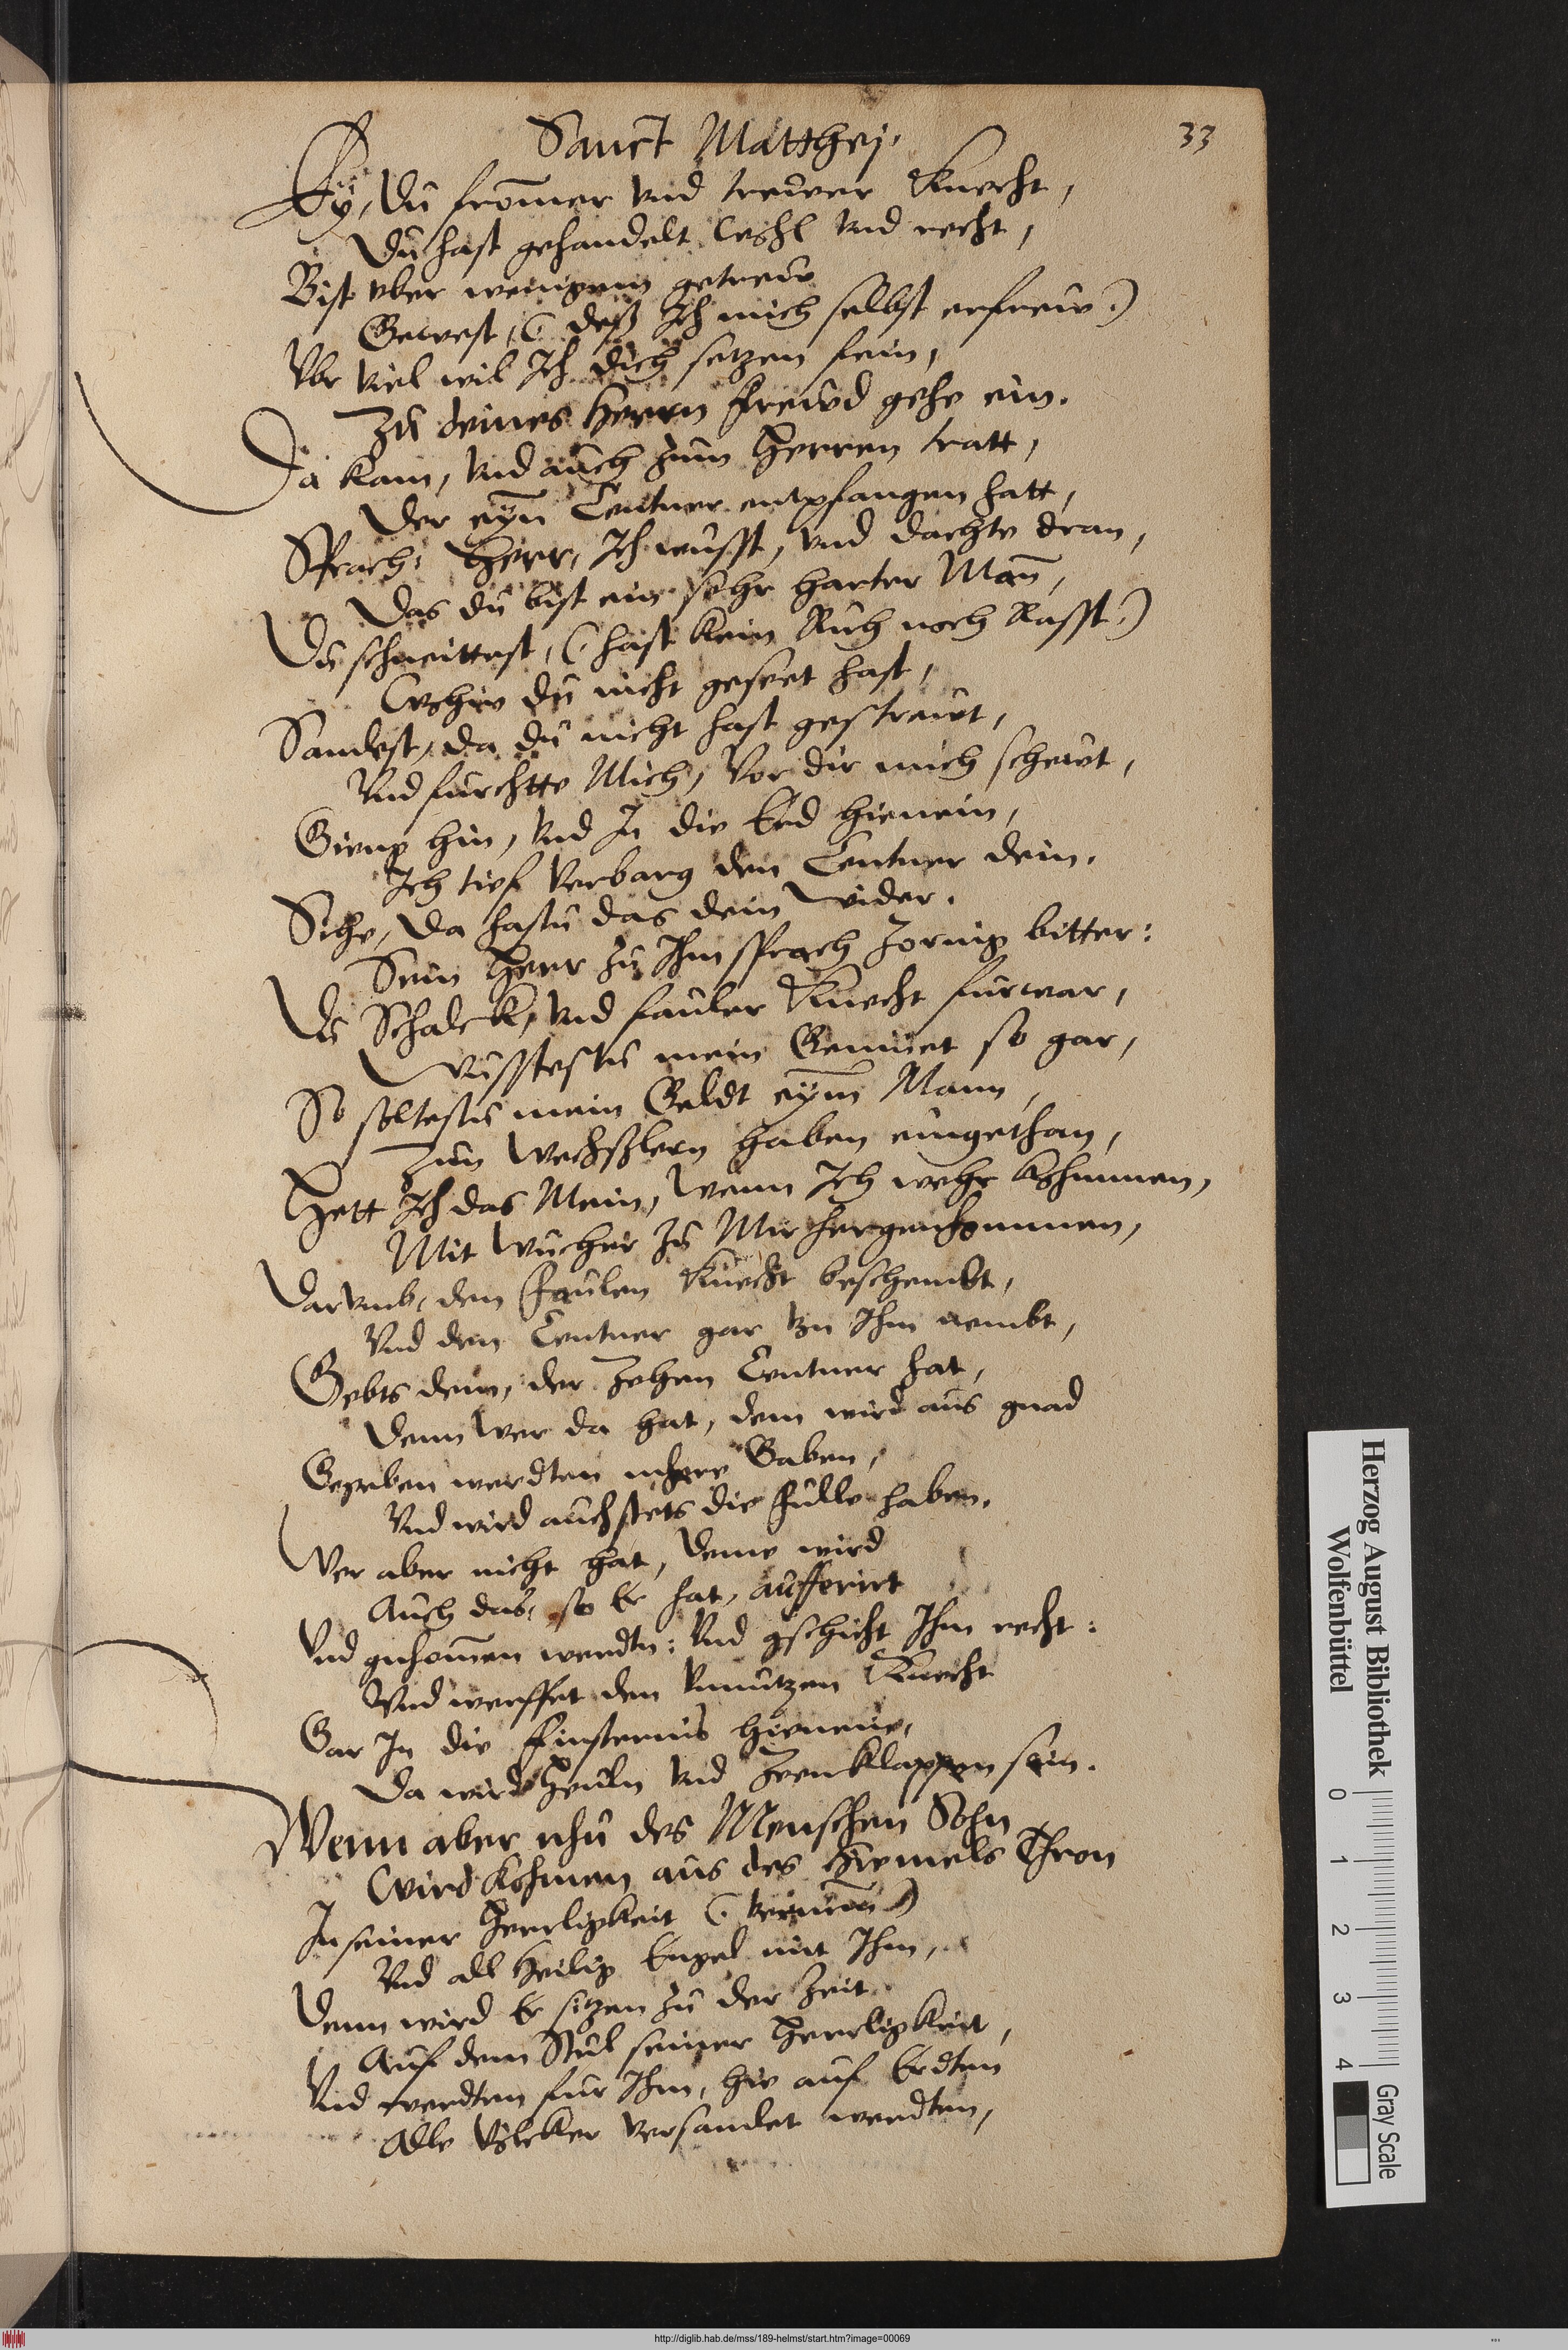 Sanct Matthej.
33
Ey, du from̄er vnd trewer Knecht,
Du hast gehandelt wohl vnd recht,
Bist vber wenigem getrew
Gewest, (deß Ich mich selbst erfrew)
Vbr viel wil Ich dich setzen fein,
Zu deines Herrn freüd gehe ein.
Da kam, vnd auch zum Herren tratt,
Der eyn Centner entpfangen hatt,
Sprach: Herr, Ich wusst, vnd dachte dran,
Das du bist ein sehr harter Man̄,
Du schneittest, (hast kein Ruh noch Rasst)
Wohin du nicht geseet hast,
Samlest, da du nicht hast gestrewt,
Vnd furchtte Mich, Vor dir mich schewt,
Gieng hin, vnd In die Erd hienein,
Ich tief verbarg den Centner dein.
Sihe, da hastu das dein wider.
Sein Herr zu Ihm sprach zornig bitter:
Du Schalck, vnd fauler Knecht furwar,
Wusstestu mein Gemüet so gar,
So soltestu mein Geldt eym Mann,
Zun Wechßlern haben eingethan,
Hett Ich das Mein, wenn Ich wehr kohmmen,
Mit Wucher zu Mir hergenohmmen,
Darumb, den faulen Knecht beschembt,
Vnd den Centner gar von Ihm nembt,
Gebts dem, der Zehen Centner hat,
Denn wer da hat, dem wird aus gnad
Gegeben werdten mhere Gaben,
Vnd wird auch stets die fulle haben.
Wer aber nicht hat, deme wird
Auch das, so Er hat, aufferirt
Vnd gnhom̄en werdtn: Vnd gschicht Ihm recht:
Vnd werffet den vnnutzen Knecht
Gar In die Finsternüs hienein,
Da wird Heuln vnd Zeenklappen sein.
Wenn aber nhu des Menschen Sohn
Wird kohmen aus des Hiemels Thron
In seiner Herrligkeit (vernim̄)
Vnd all Heilig Engel mit Ihm,
Denn wird Er sitzen zu der Zeit
Auf dem Stul seiner Herrligkeit,
Vnd werdten fur Ihm, hie auf Erdten
Alle Völcker versamlet werdten,
Herzog August Bibliothek
Wolfenbüttel
0 1 2 3 4
Gray Scale
http://diglib.hab.de/mss/189-helmst/start.htm?image=00069